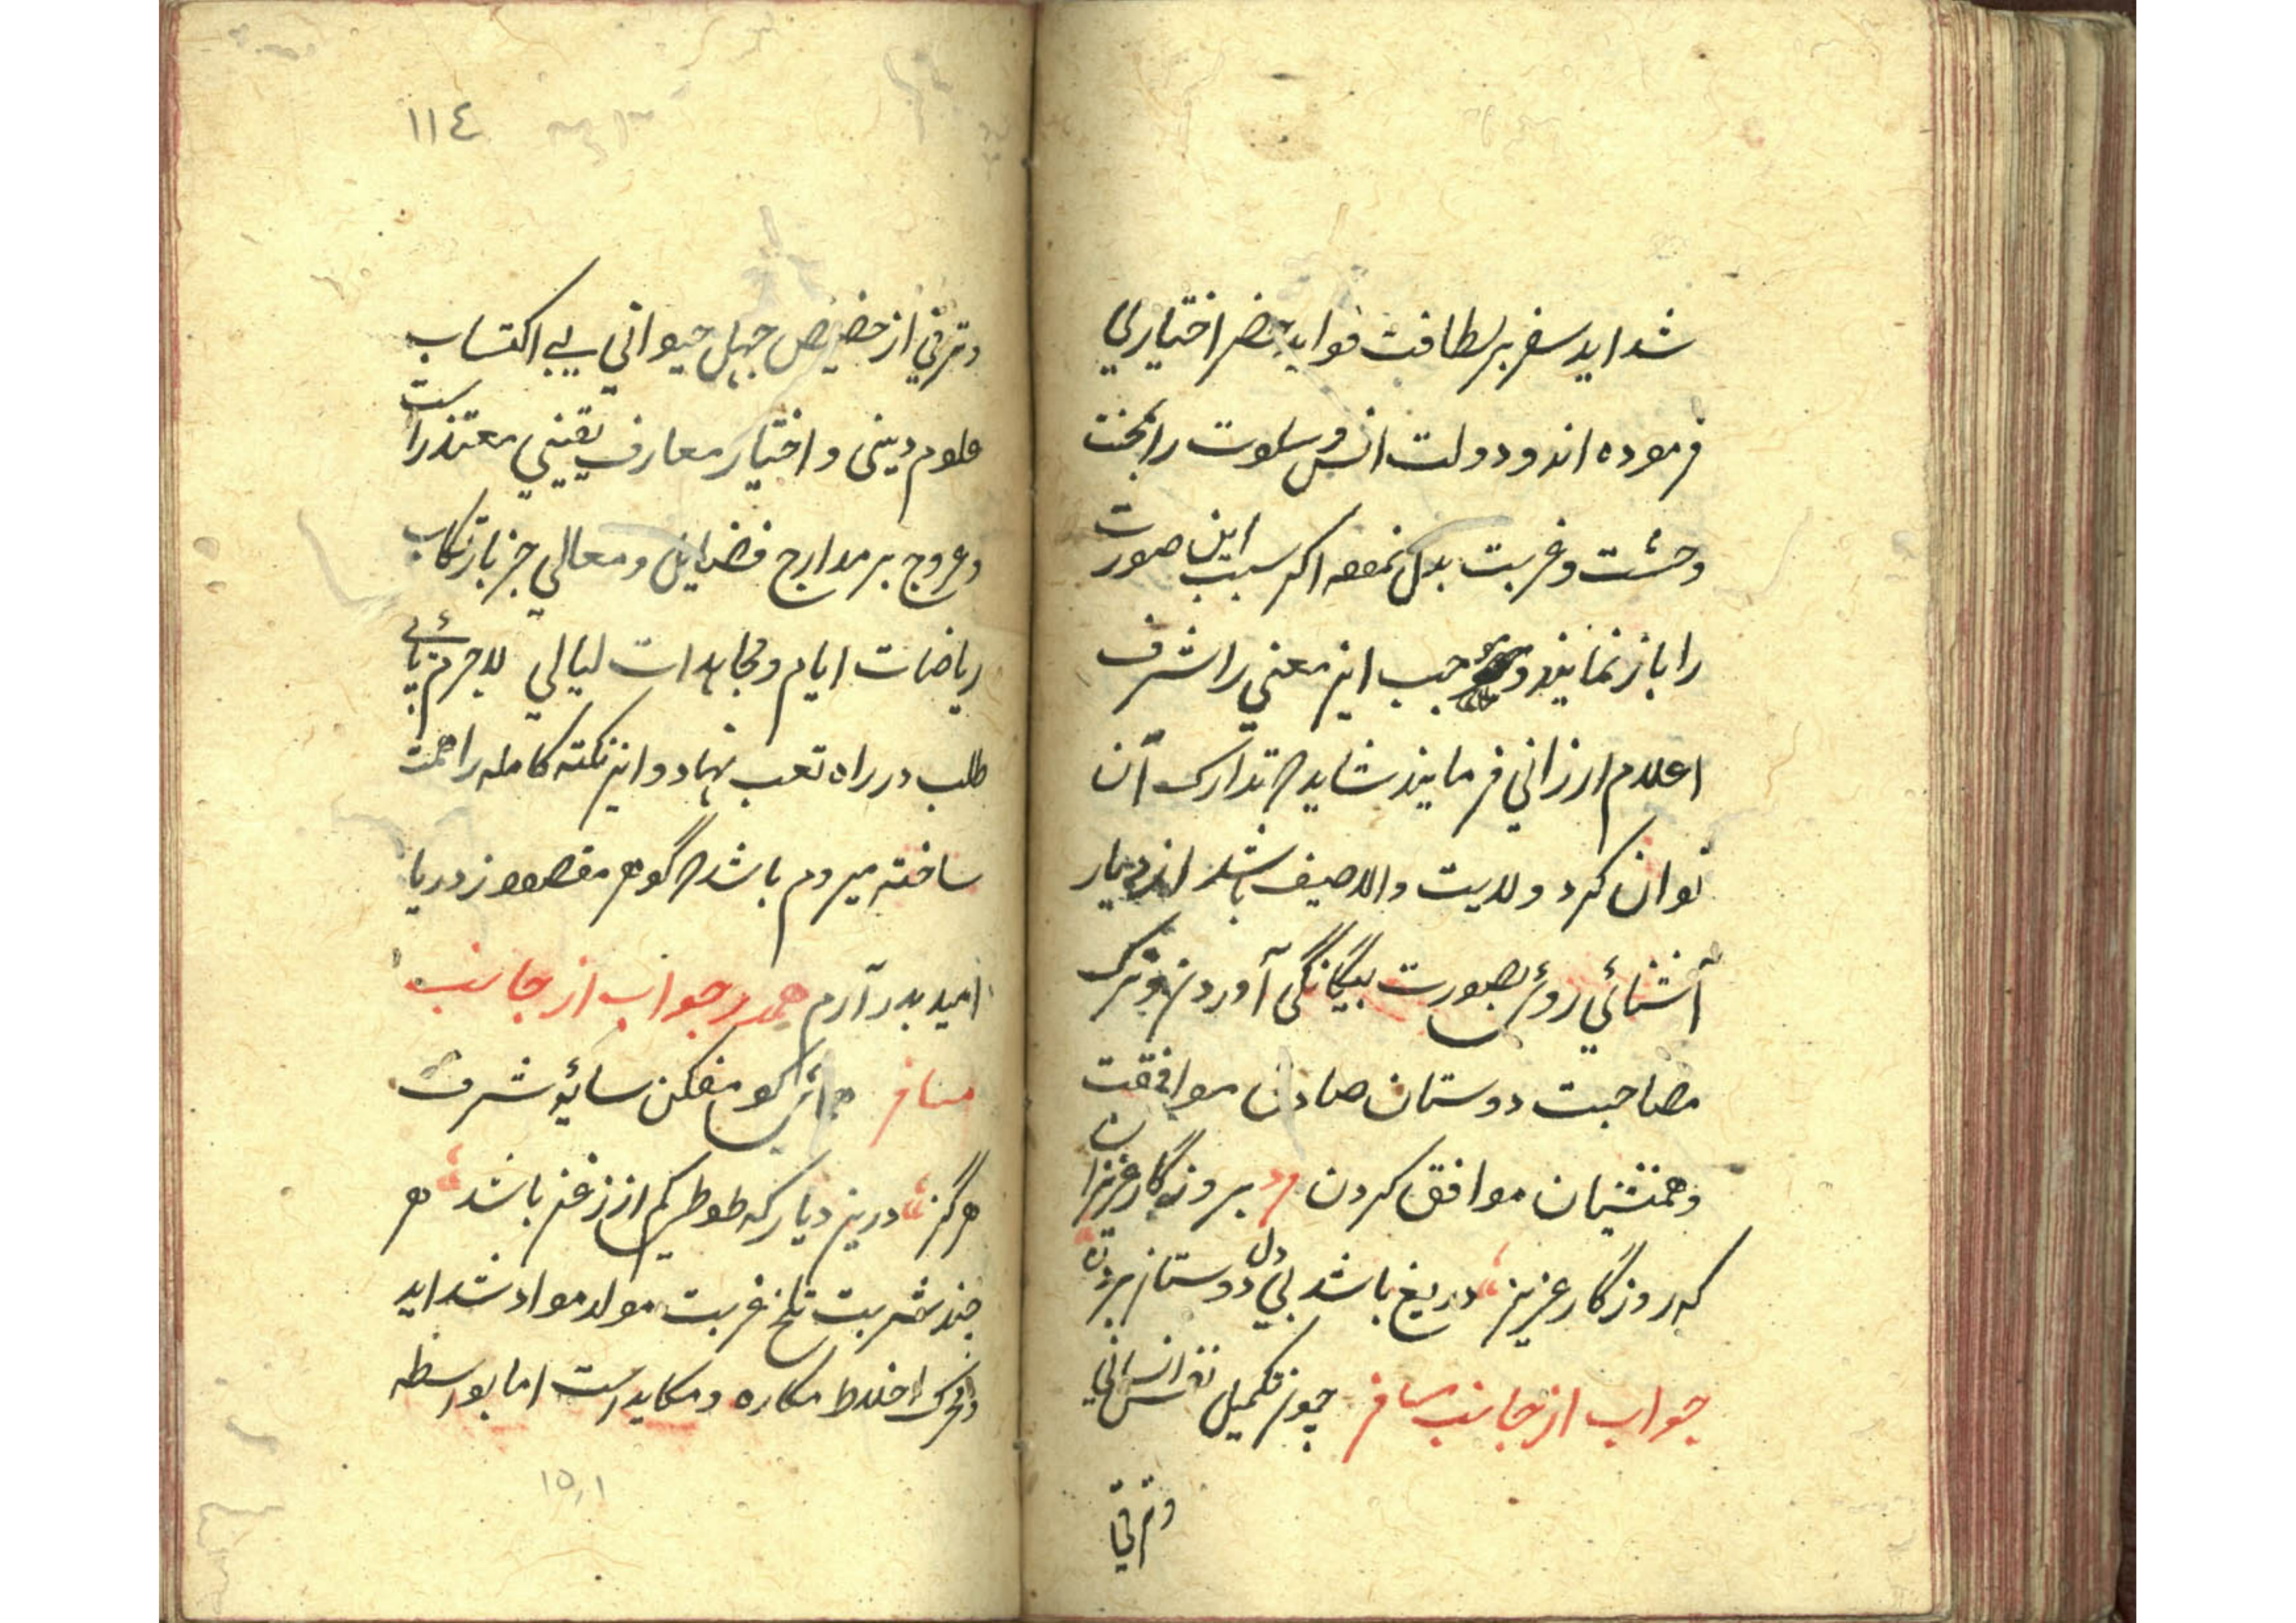 شداید سفر بر لطافت فواید حضر اختیاری
فرموده اند و دولت انس و سلوت را بخت
وحشت و غربت بدل نموده اکر سبب این صورت
را باز نمایند و موجب این معنی را شرف
اعلام ارزانی فرمایند شاید که تدارک آن
توان کرد ولایت والا حیف باشد از دیار
آشنائی روی بصورت بیگانگی آوردن و ترک
مصاحبت دوستان صادق موافقت
وهمنشینان موافق کردن بروزگار عزیزان
که روزگار عزیز دریغ باشد بی دوستان بردن
جواب از جانب مسافر چون تکمیل نفس انسانی
وترقی
١١٤
وترقی از حضیض جهل حیوانی بی اکتساب
علوم دینی و اختیار معارف یقینی معتذر است
وعروج بر مدارج فضایل و معالی جز بارتکاب
ریاضات ایام و مجاهدات لیالی لاجرم پائی
طلب در راه تعب نهاد و این نکته کامله را همت
ساخته میروم باشد که گوهر مقصود ز دریا
امید بدر آرم جواب از جانب
مسافر همای کو مفکن سایۀ شرف
هرگز درین دیار که طوطی کم از زغن باشد هر
چند شربت تلخ غربت مولد مواد شداید
ومحرک اخلاط مکاره و مکاید است اما بواسطه